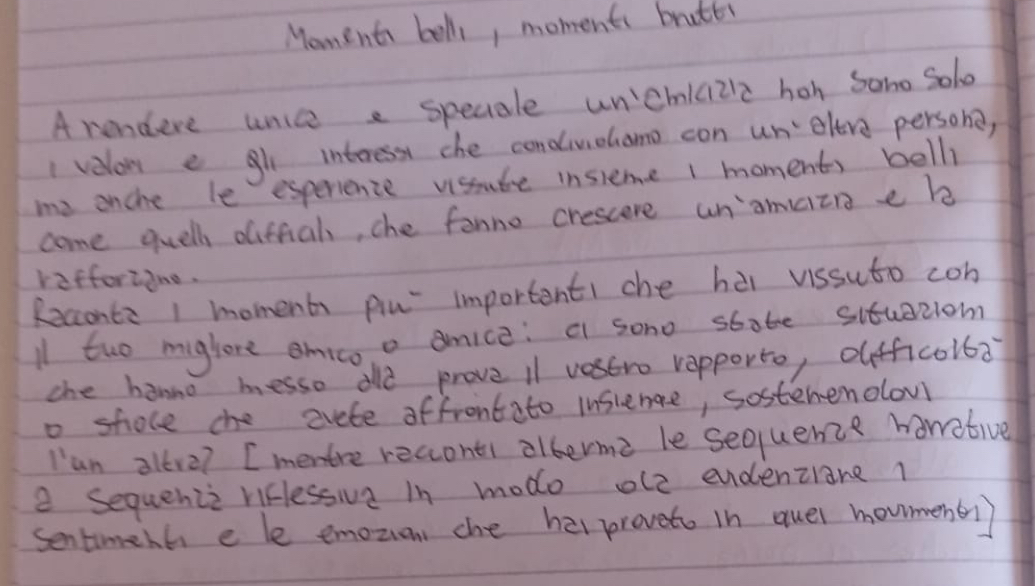 Momenti belli, momenti brutti
A rendere unica e speciale un'amicizia non sono solo
i valori e gli interessi che condividiamo con un'altra persona,
ma anche le esperienze vissute insieme i momenti belli
come quelli difficili, che fanno crescere un'amicizia e la
rafforzano.
Racconta i momenti più importanti che hai vissuto con
il tuo migliore amico o amica: ci sono state situazioni
che hanno messo alla prova il vostro rapporto, difficoltà
o sfide che avete affrontato insieme, sostenendovi
l'un altra? [mentre racconti alterna le sequenze narrative
a sequenze riflessiva in modo da evidenziare i
sentimenti e le emozioni che hai provato in quei movimenti]